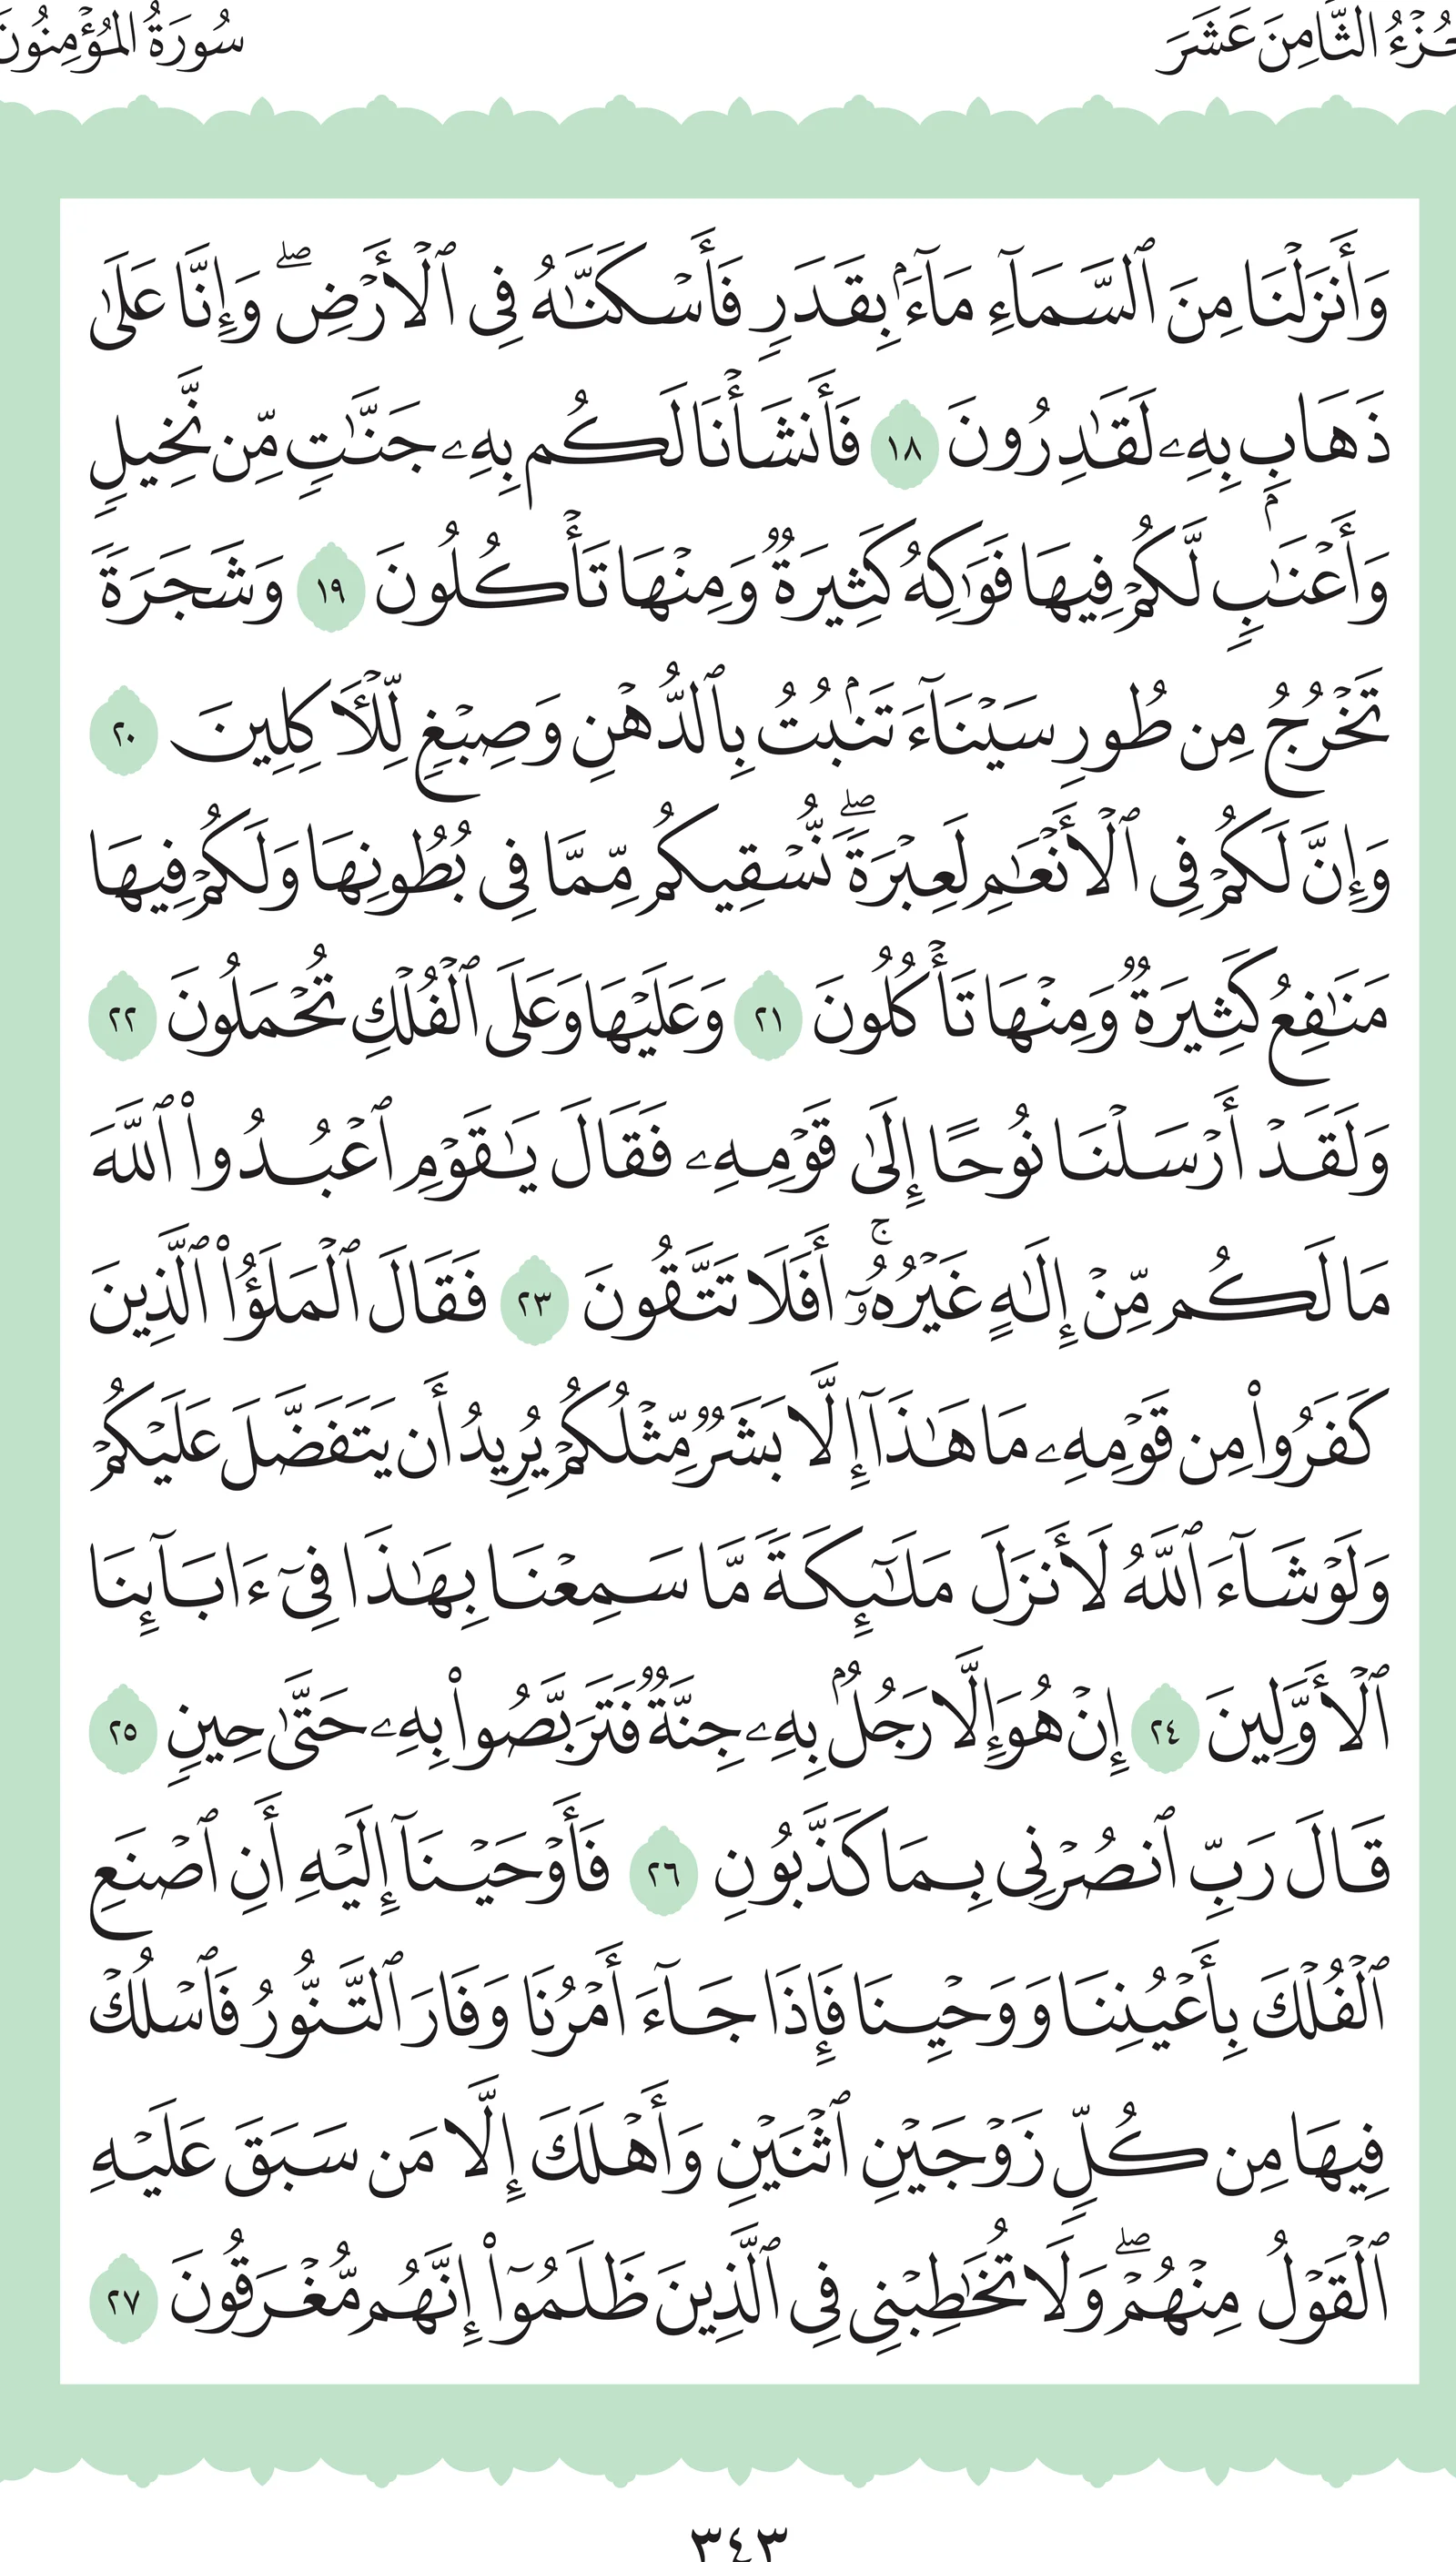 الجُزْءُ الثَّامِنَ عَشَرَ سُورَةُ المُؤْمِنُونَ
وَأَنزَلْنَا مِنَ ٱلسَّمَآءِ مَآءَۢ بِقَدَرٍ فَأَسْكَنَّٰهُ فِى ٱلْأَرْضِۖ وَإِنَّا عَلَىٰ
ذَهَابٍۭ بِهِۦ لَقَٰدِرُونَ ١٨ فَأَنشَأْنَا لَكُم بِهِۦ جَنَّٰتٍ مِّن نَّخِيلٍ
وَأَعْنَٰبٍ لَّكُمْ فِيهَا فَوَٰكِهُ كَثِيرَةٌ وَمِنْهَا تَأْكُلُونَ ١٩ وَشَجَرَةً
تَخْرُجُ مِن طُورِ سَيْنَآءَ تَنۢبُتُ بِٱلدُّهْنِ وَصِبْغٍ لِّلْـَٔاكِلِينَ ٢٠
وَإِنَّ لَكُمْ فِى ٱلْأَنْعَٰمِ لَعِبْرَةًۖ نُّسْقِيكُم مِّمَّا فِى بُطُونِهَا وَلَكُمْ فِيهَا
مَنَٰفِعُ كَثِيرَةٌ وَمِنْهَا تَأْكُلُونَ ٢١ وَعَلَيْهَا وَعَلَى ٱلْفُلْكِ تُحْمَلُونَ ٢٢
وَلَقَدْ أَرْسَلْنَا نُوحًا إِلَىٰ قَوْمِهِۦ فَقَالَ يَٰقَوْمِ ٱعْبُدُوا۟ ٱللَّهَ
مَا لَكُم مِّنْ إِلَٰهٍ غَيْرُهُۥٓۚ أَفَلَا تَتَّقُونَ ٢٣ فَقَالَ ٱلْمَلَؤُا۟ ٱلَّذِينَ
كَفَرُوا۟ مِن قَوْمِهِۦ مَا هَٰذَآ إِلَّا بَشَرٌ مِّثْلُكُمْ يُرِيدُ أَن يَتَفَضَّلَ عَلَيْكُمْ
وَلَوْ شَآءَ ٱللَّهُ لَأَنزَلَ مَلَٰٓئِكَةً مَّا سَمِعْنَا بِهَٰذَا فِىٓ ءَابَآئِنَا
ٱلْأَوَّلِينَ ٢٤ إِنْ هُوَ إِلَّا رَجُلٌۢ بِهِۦ جِنَّةٌ فَتَرَبَّصُوا۟ بِهِۦ حَتَّىٰ حِينٍ ٢٥
قَالَ رَبِّ ٱنصُرْنِى بِمَا كَذَّبُونِ ٢٦ فَأَوْحَيْنَآ إِلَيْهِ أَنِ ٱصْنَعِ
ٱلْفُلْكَ بِأَعْيُنِنَا وَوَحْيِنَا فَإِذَا جَآءَ أَمْرُنَا وَفَارَ ٱلتَّنُّورُ فَٱسْلُكْ
فِيهَا مِن كُلٍّ زَوْجَيْنِ ٱثْنَيْنِ وَأَهْلَكَ إِلَّا مَن سَبَقَ عَلَيْهِ
ٱلْقَوْلُ مِنْهُمْۖ وَلَا تُخَٰطِبْنِى فِى ٱلَّذِينَ ظَلَمُوٓا۟ إِنَّهُم مُّغْرَقُونَ ٢٧
٣٤٣